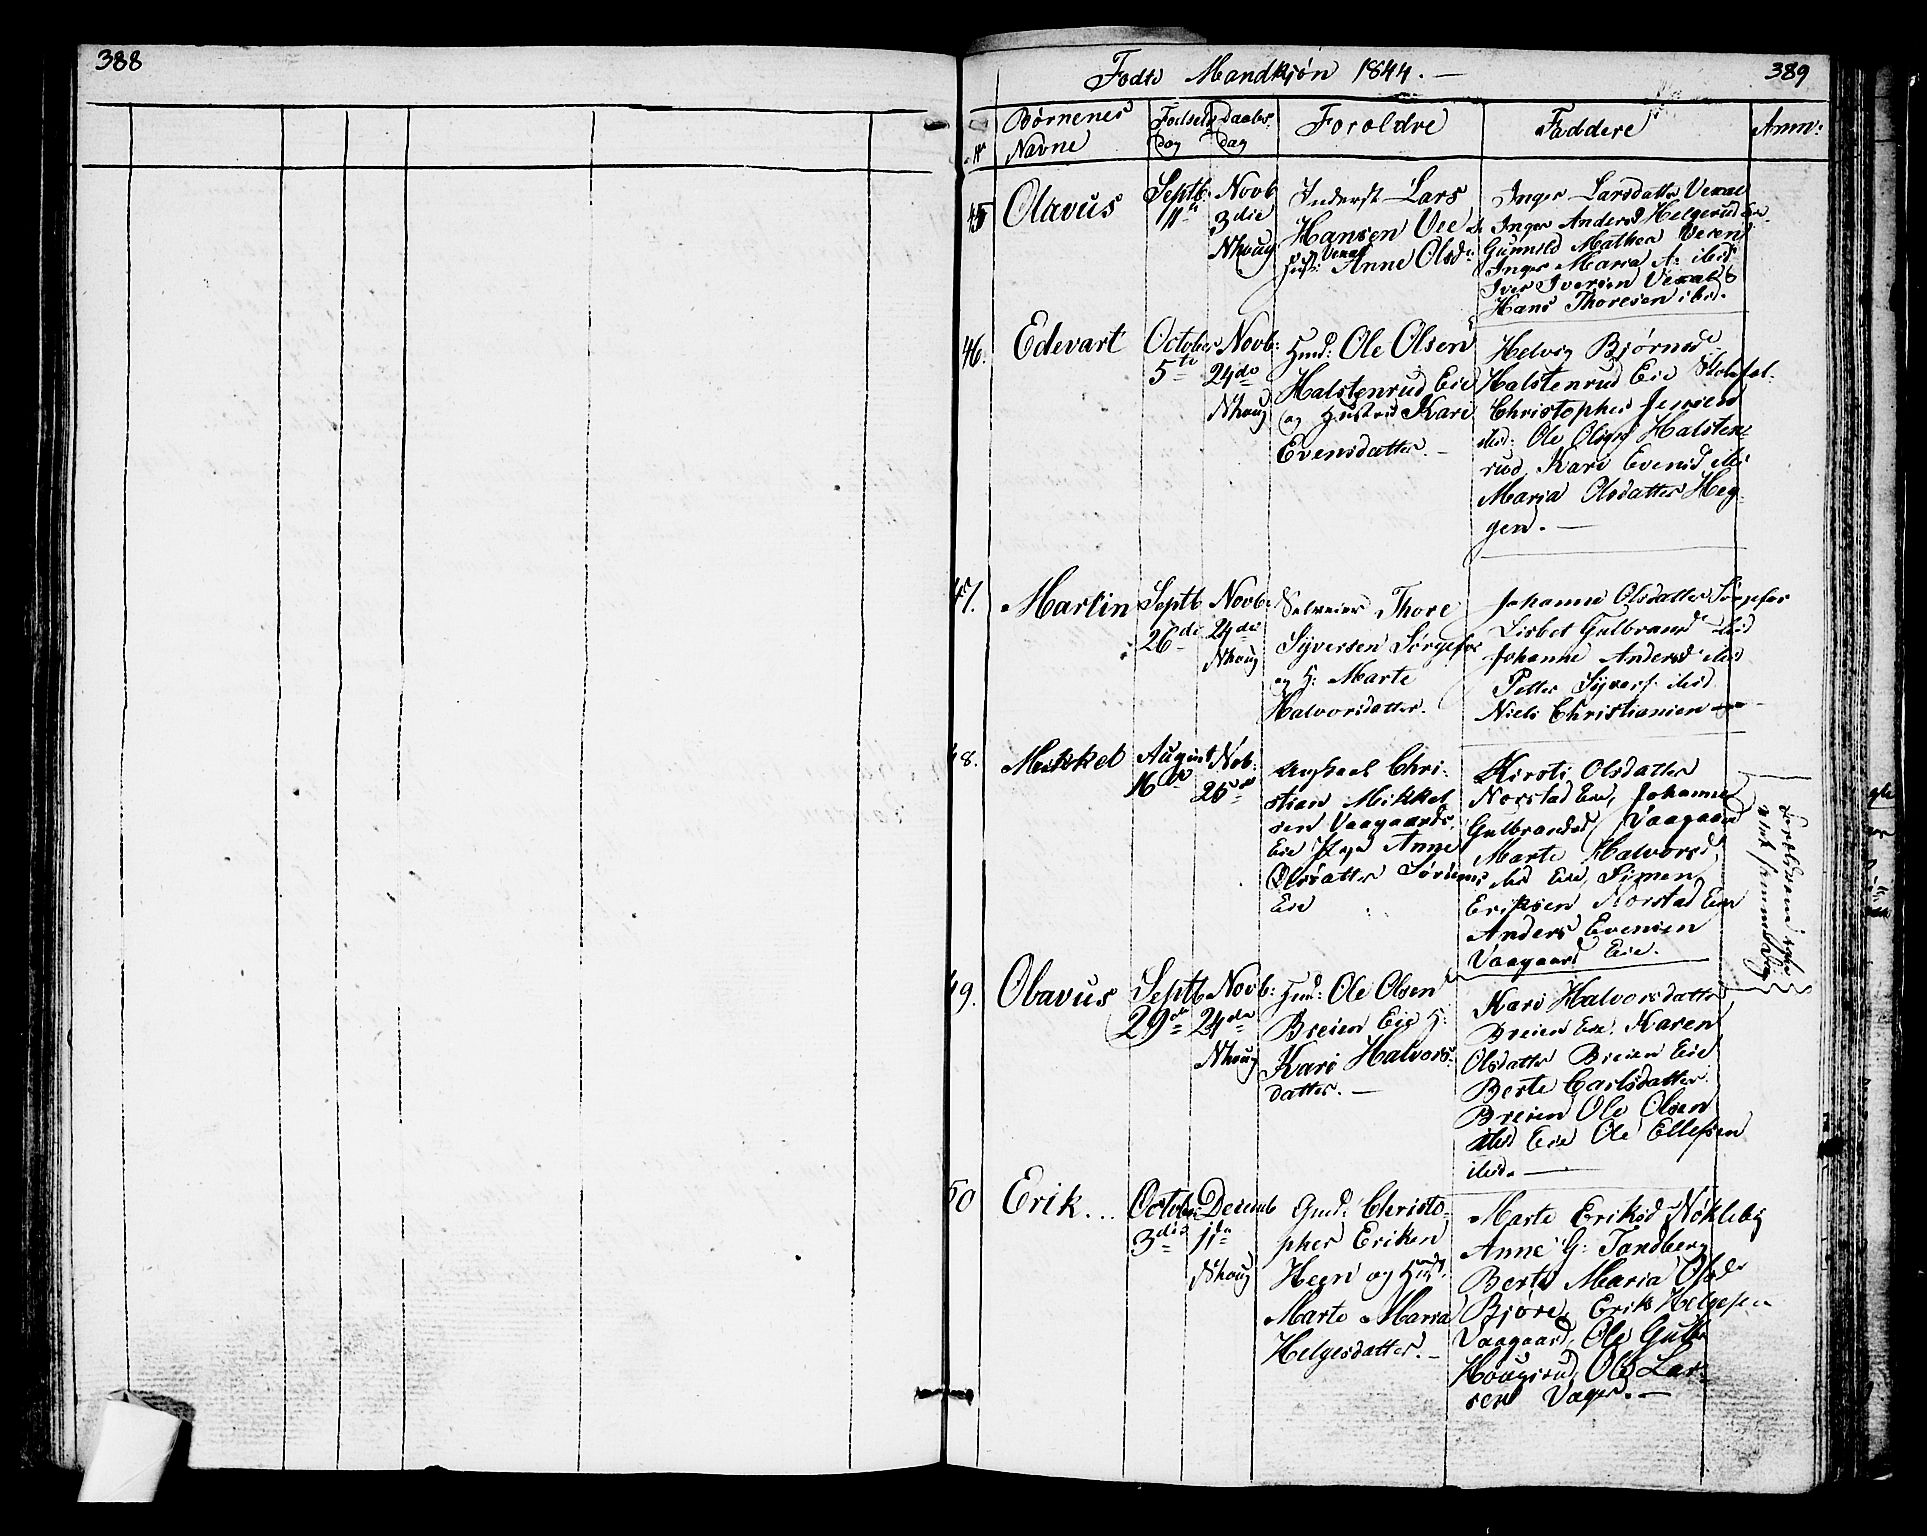 388
Fødte Mandkjøn 1844. —
389
Nr
Børnenes
Navne
Fødsels
dag
Daabs
dag
Forældre
Faddere
Anm:
45
Olavus
Septb:
11te
Novb
3die
Nhoug
Inderst Lars
Hansen Vee
Hust: Anne Olsd:
Inger Larsdatter
Inger Andersd Helgerud
Gunnild Mathea
Inger Maria A: ibid
Iver Iversen
Hans Thoresen ibid.
46.
Edevart
October
5te
Novb:
24de
Nhoug
Hmd: Ole Olsen
Halstenrud Eie
og Hustru Kari
Evensdatter. —
Helvig Bjørnsd
Halstenrud Eie
Christopher Jensen
ibid: Ole Olsen Halsten-
rud, Kari Evensd ibid
Maria Olsdatter Heg-
gen. —
47.
Martin
Septb
26de
Novb:
24de
Nhoug
Selveier Thore
Syversen Sørgefos
og H: Marte
Halvorsdatter.
Johanne Olsdatter Sørgefos
Lisbet Gulbrandsd ibid
Johanne Andersd ibid
Petter Syvers: ibid
Niels Christiansen
48.
Mikkel
August
16de
Nob:
25de
Ungkarl Chri-
stian Mikkel-
sen Vaagaards
Eie Pige Anne
Olsdatter
Eie
Kirsti Olsdatter
Norstad Eie, Johanne
Gulbrandsd, Vaagaard
Marte Halvorsd,
ibid Eie, Simen
Eriksen Norstad Eie
Anders Evensen
Vaagaard Eie.
49.
Olavus
Septb
29de
Novb:
24de
Nhoug
Hmd: Ole Olsen
Breien Eie H:
Kari Halvors-
datter. —
Kari Halvorsdatter
Breien Eie, Karen
Olsdatter Breien Eie
Berte Carlsdatter
Breien Ole Olsen
ibid Eie Ole Ellefsen
ibid. —
50
Erik...
October
3die
Decemb
1te
Nhoug
Gmd: Christo-
pher Eriksen
Heen og Hust:
Marte Maria
Helgesdatter. —
Marte Eriksd Nökleby
Anne G: Tandberg
Berte Maria Olsd:
Bjøre, Erik Helgesen
Vaagaard, Ole Gulbr
Hougsrud, Ole Lar-
sen Vager. —